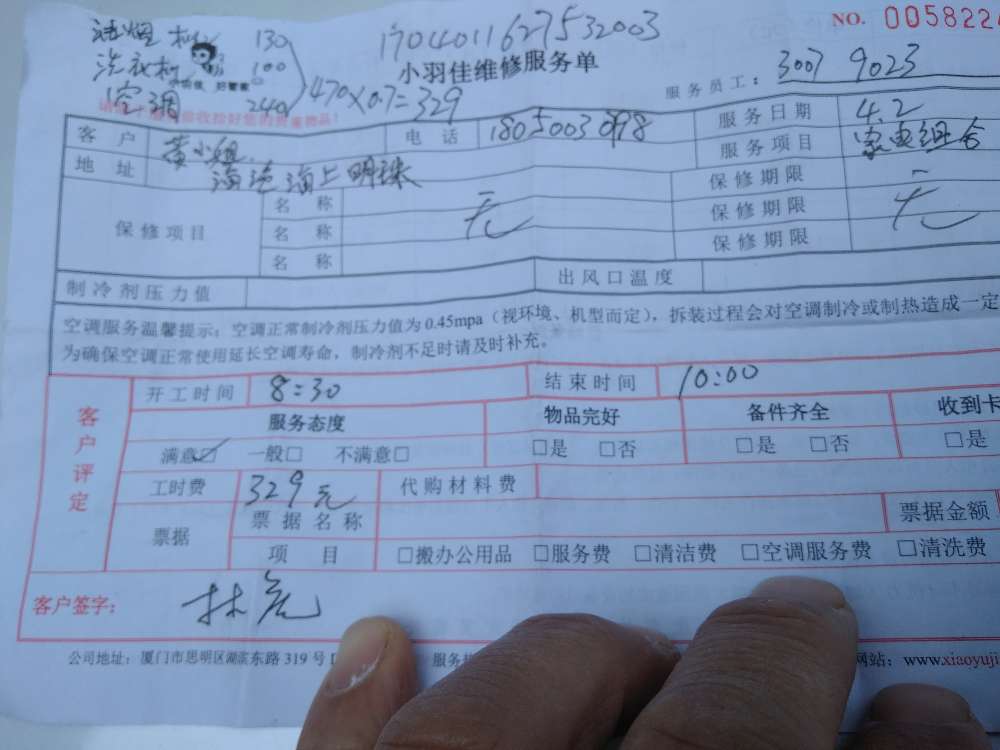 油烟机 130
洗衣机 100
空调 240
470×0.7=329
1704011627532003
NO. 0058224
小羽佳 好管家
小羽佳维修服务单
服务员工： 3007 9023
客户 黄小姐 电话 1805003098 服务日期 4.2
地址 海沧海上明珠 服务项目 家电组合
保修项目 名称 无 保修期限 无
名称 保修期限
名称 保修期限
制冷剂压力值 出风口温度
空调服务温馨提示：空调正常制冷剂压力值为0.45mpa（视环境、机型而定），拆装过程会对空调制冷或制热造成一定
为确保空调正常使用延长空调寿命，制冷剂不足时请及时补充。
客户评定
开工时间 8:30 结束时间 10:00
服务态度 物品完好 备件齐全 收到卡
满意☑ 一般□ 不满意□ □是 □否 □是 □否 □是
工时费 329元 代购材料费
票据 票据名称 票据金额
项目 □搬办公用品 □服务费 □清洁费 □空调服务费 □清洗费
客户签字：
公司地址：厦门市思明区湖滨东路319号 服务 网站：www.xiaoyuji